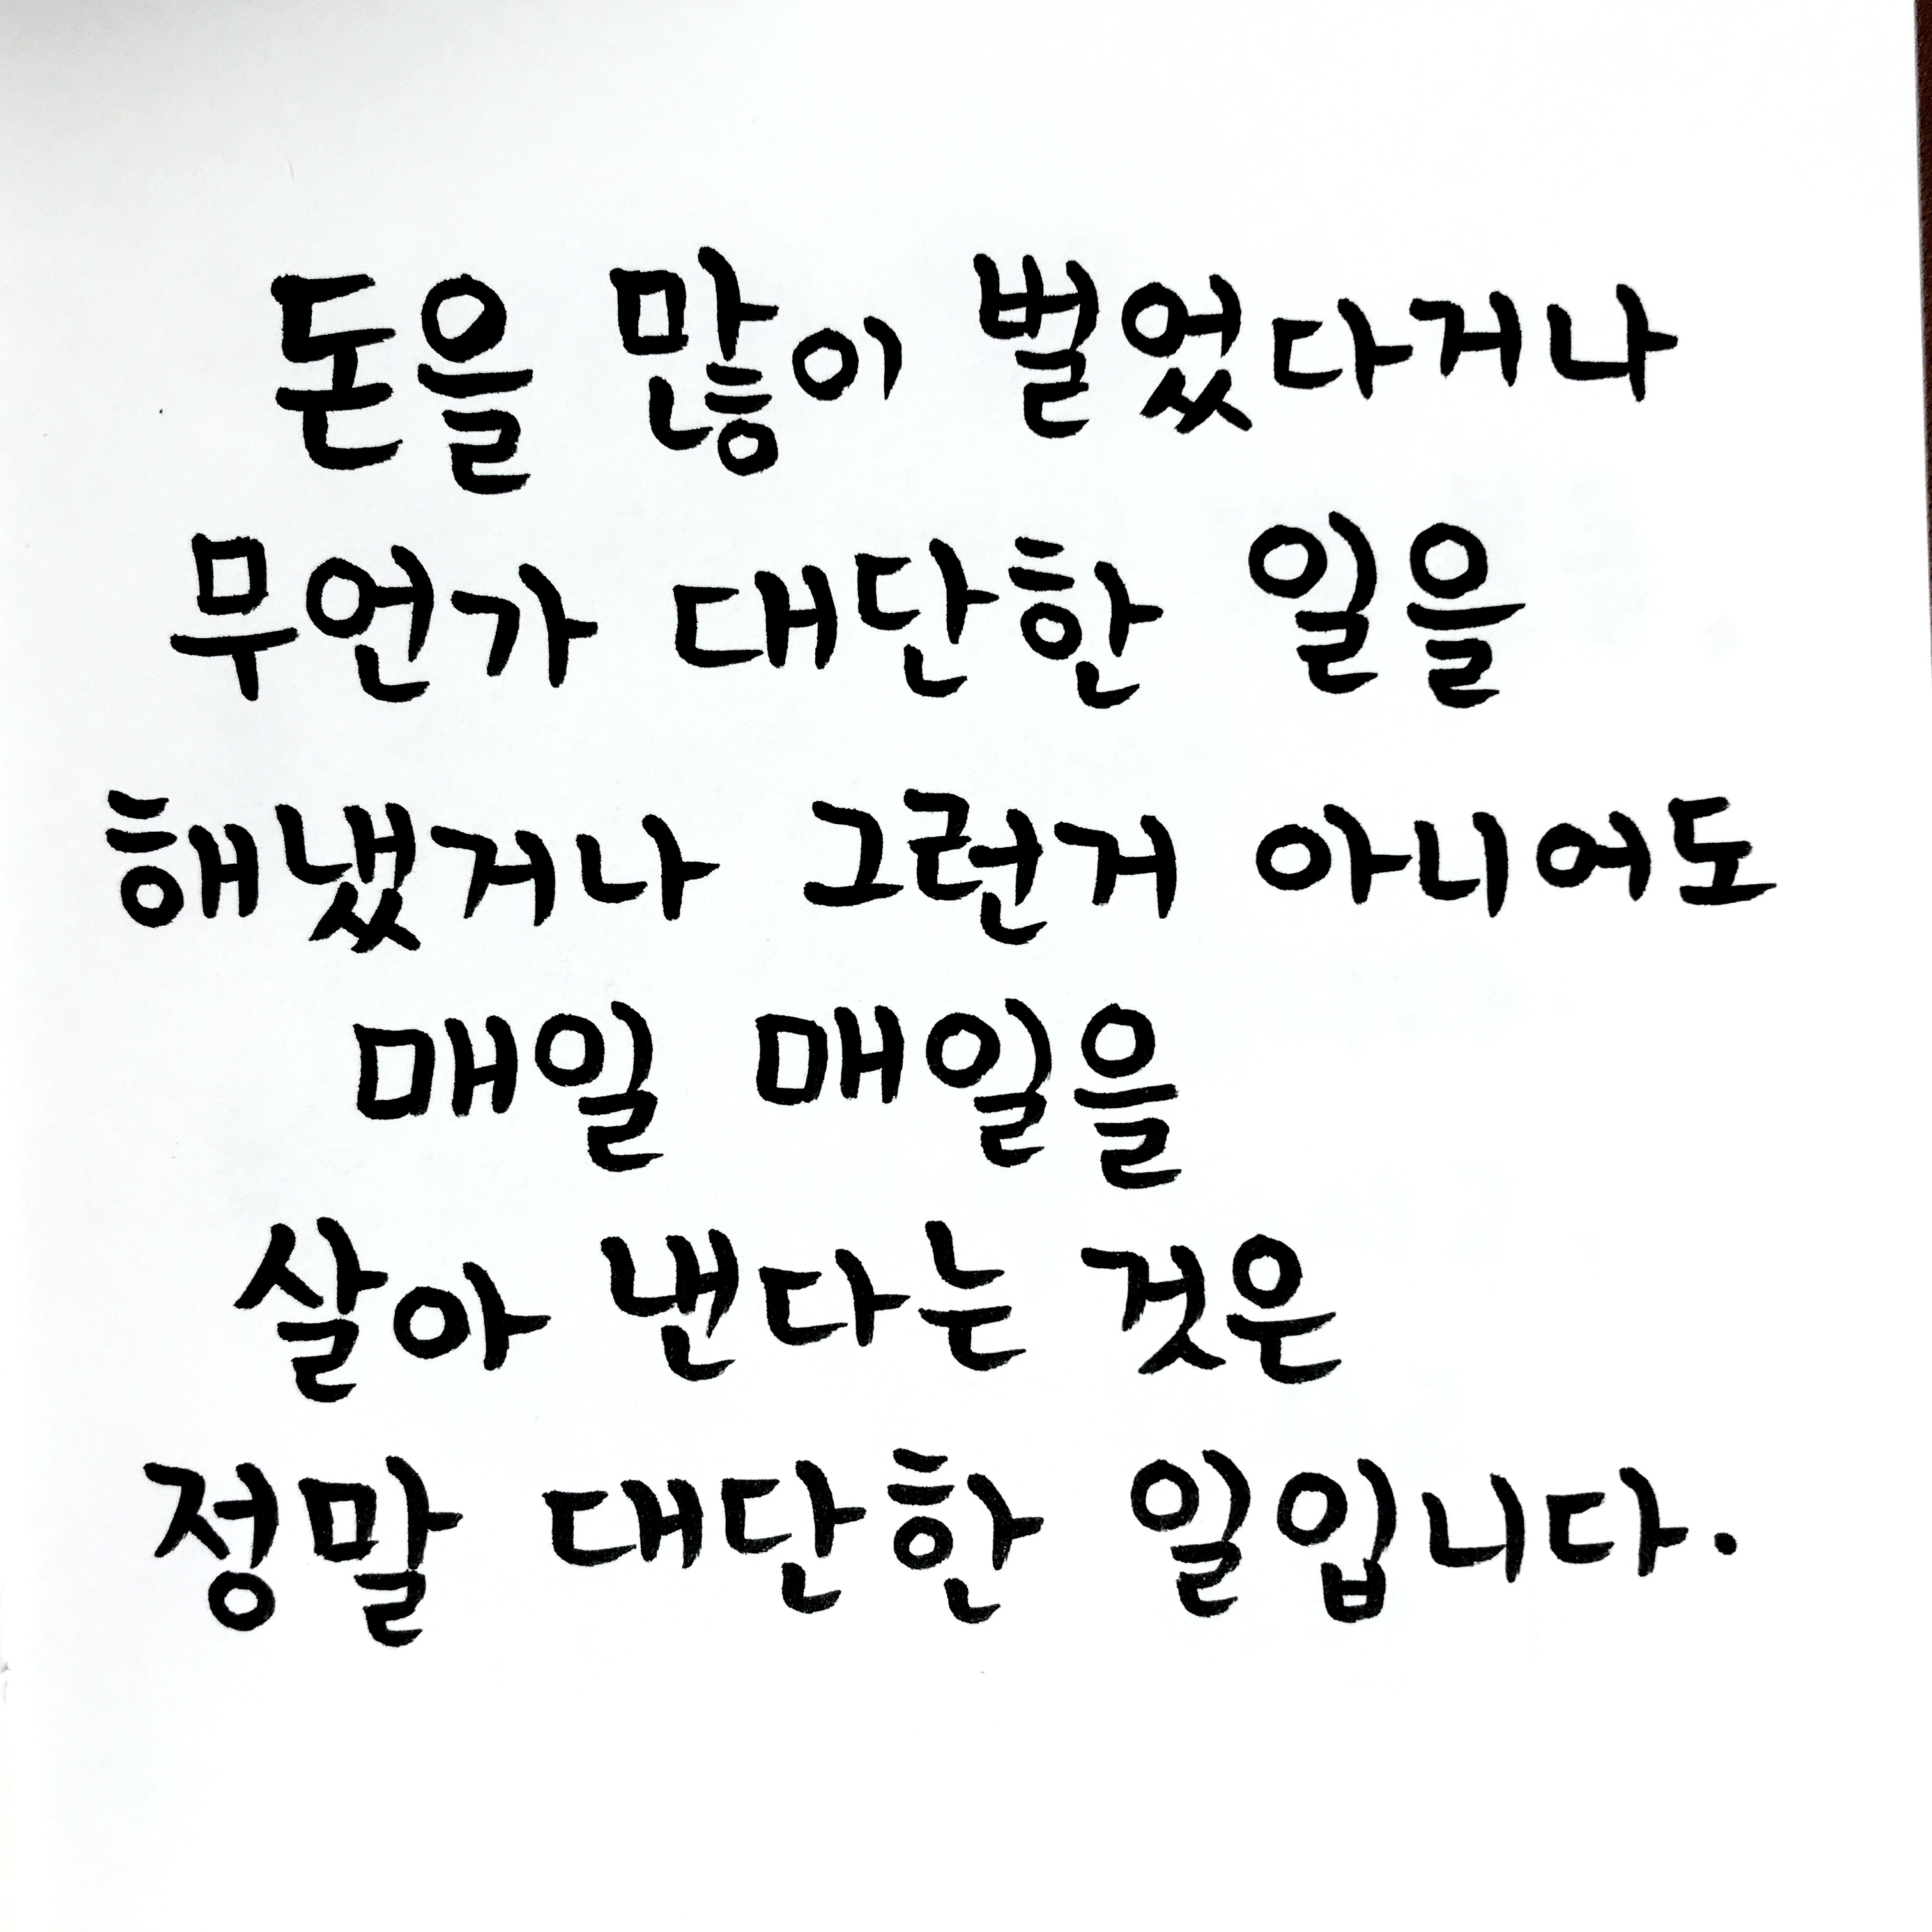 돈을 많이 벌었다거나
무언가 대단한 일을
해냈거나 그런거 아니어도
매일 매일을
살아 낸다는 것은
정말 대단한 일입니다.